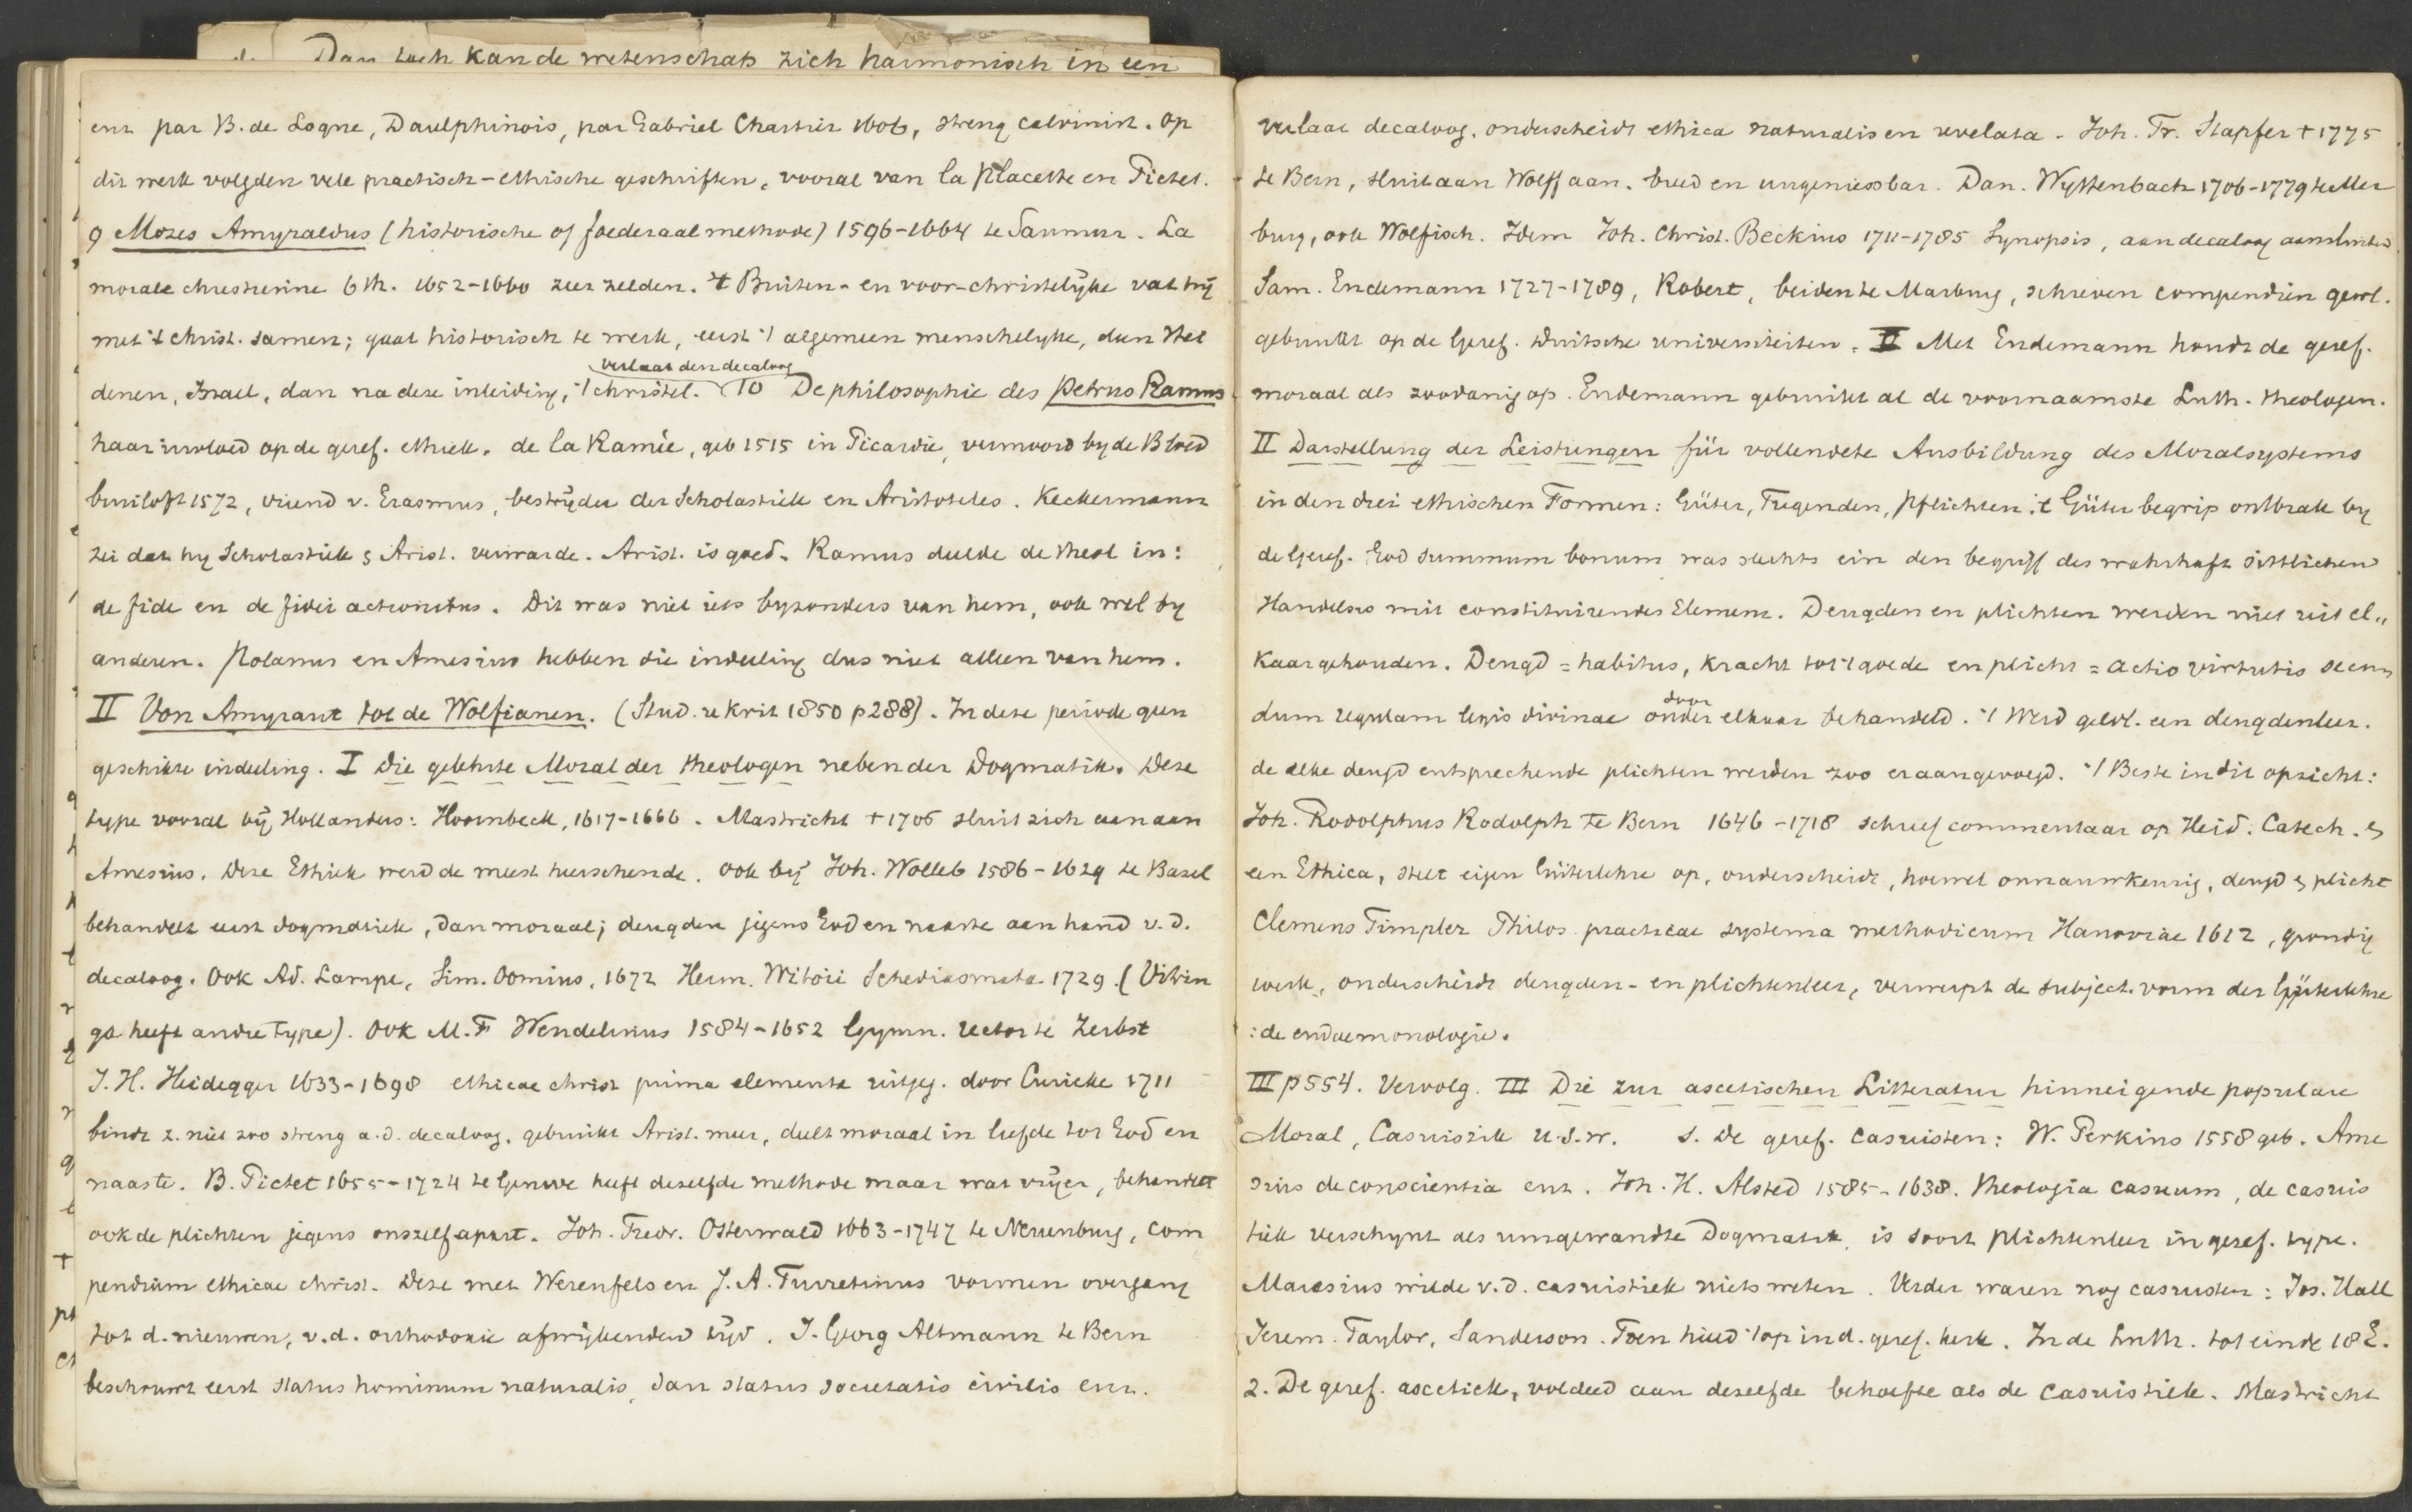 Dan toch kan de wetenschap zich harmonisch in een
enz par B. de Logne, Daulphinois, par Gabriel Chartier 1606, streng calvinist. Op
dit werk volgden vele practisch-ethische geschriften, vooral van la Placette en Pictet.
9 Mozes Amyraldus (historische of foederaal methode) 1596-1664 te Saumur. La
morale chrestienne 6 th. 1652-1660 zeer zelden. 't Buiten- en voor-christelijke vat hij
met 't christ. samen; gaat historisch te werk, eerst 't algemeen menschelyke, dan Hei
verlaat den decaloog
denen, Israel, dan na deze inleiding, 't christel. 10 De philosophie des Petrus Ramus
haar invloed op de geref. ethiek. de la Ramée, geb 1515 in Picardie, vermoord by de Bloed
bruiloft 1572, vriend v. Erasmus, bestrijder der Scholastiek en Aristoteles. Keckermann
zei dat hy Scholastiek & Arist. verwarde. Arist. is goed. Ramus deelde de theol in:
de fide en de fidei actionibus. Dit was niet iets byzonders van hem, ook wel by
anderen. Polanus en Amesius hebben die indeeling dus niet alleen van hem.
II Von Amyraut tot de Wolfianen. (Stud. u Krit 1850 p 288). In deze periode geen
geschikte indeeling. I Die gelehrte Moral der theologen neben der Dogmatik. Deze
type vooral bij Hollanders: Hoornbeek, 1617-1666. Mastricht † 1706 sluit zich aan aan
Amesius. Deze Ethiek werd de meest heerschende. Ook bij Joh. Wolleb 1586-1629 te Basel
behandelt eerst dogmatiek, dan moraal; deugden jegens God en naaste aan hand v. d.
decaloog. Ook Ad. Lampe, Sim. Oomius, 1672 Herm. Witsii Schediasmata 1729. (Vitrin
ga heeft andre type). Ook M. F Wendelinus 1584-1652 Gymn. rector te Zerbst
J. H. Heidegger 1633-1698 ethicae christ prima elementa uitgeg. door Curicke 1711
bindt z. niet zoo streng a. d. decaloog, gebruikt Arist. meer, deelt moraal in liefde tot God en
naaste. B. Pictet 1655-1724 te Geneve heeft dezelfde methode maar wat vrijer, behandelt
ook de plichten jegens onszelf apart. Joh. Fredr. Osterwald 1663-1747 te Neuenburg, com
pendium ethicae christ. Deze met Werenfels en J. A. Turretinus vormen overgang
tot d. nieuwen, v. d. orthodoxie afwijkenden tijd. J. Georg Altmann te Bern
beschouwt eerst status hominum naturalis, dan status societatis civilis enz.
verlaat decaloog, onderscheidt ethica naturalis en revelata. Joh. Fr. Stapfer † 1775
te Bern, sluit aan Wolff aan, breed en ungeniessbar. Dan. Wyttenbach 1706-1779 te Mar
burg, ook Wolfisch. Idem Joh. Christ. Beckius 1711-1785 Synopsis, aan decaloog aansluitend
Sam. Endemann 1727-1789, Robert, beiden te Marburg, schreven compendien gewl.
gebruikt op de Geref. Duitsche universiteiten. II Met Endemann houdt de geref.
moraal als zoodanig op. Endemann gebruikt al de voornaamste Luth. theologen.
II Darstellung der Leistungen für vollendete Ausbildung des Moralsystems
in den drei ethischen Formen: Güter, Tugenden, Pflichten. 't Güter begrip ontbrak by
de Geref. God summum bonum was slechts ein den begriff des wahrhaft sittlichen
Handelns mit constituirendes Element. Deugden en plichten werden niet uit el„
kaar gehouden. Deugd = habitus, kracht tot 't goede en plicht = actio virtutis secun
door
dum regulam legis divinae onder elkaar behandeld. 't Werd gewl. een deugdenleer.
de elke deugd entsprechende plichten werden zoo er aangevoegd. 't Beste in dit opzicht:
Joh. Rodolphus Rodolph te Bern 1646-1718 schreef commentaar op Heid. Catech. &
een Ethica, stelt eigen Güterlehre op, onderscheidt, hoewel onnauwkeurig, deugd & plicht
Clemens Timpler Philos. practicae systema methodicum Hanoviae 1612, grondig
werk, onderscheidt deugden- en plichtenleer, verwerpt de subject. vorm der Güterlehre
: de eudaemonologie.
III p 554. Vervolg. III Die zur ascetischen Litteratur hinneigende populare
Moral, Casuistik u. s. w. 1. De geref. casuisten: W. Perkins 1558 geb. Ame
sius de conscientia enz. Joh. H. Alsted 1585-1638. theologia casuum, de casuis
tiek verschynt als umgewandte Dogmatik, is soort plichtenleer in geref. type.
Maresius wilde v. d. casuistiek niets weten. Verder waren nog casuisten: Jos. Hall
Jerem. Taylor, Sanderson. Toen hield 't op in d. geref. kerk. In de Luth. tot einde 18 E.
2. De geref. ascetiek, voldeed aan dezelfde behoefte als de casuistiek. Mastricht